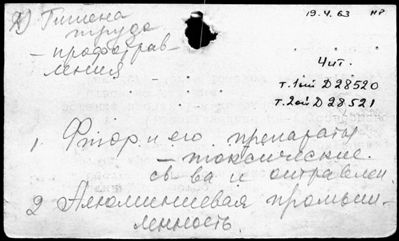 19.4.63 НР
Гигиена
труда
- профотрав-
ления
Чит.
т. 1ый Д 28520
т. 2ой Д 28521
1. Фтор и его препараты
- токсические
св-ва и отравлен.
2 Алюминиевая промыш-
ленность.